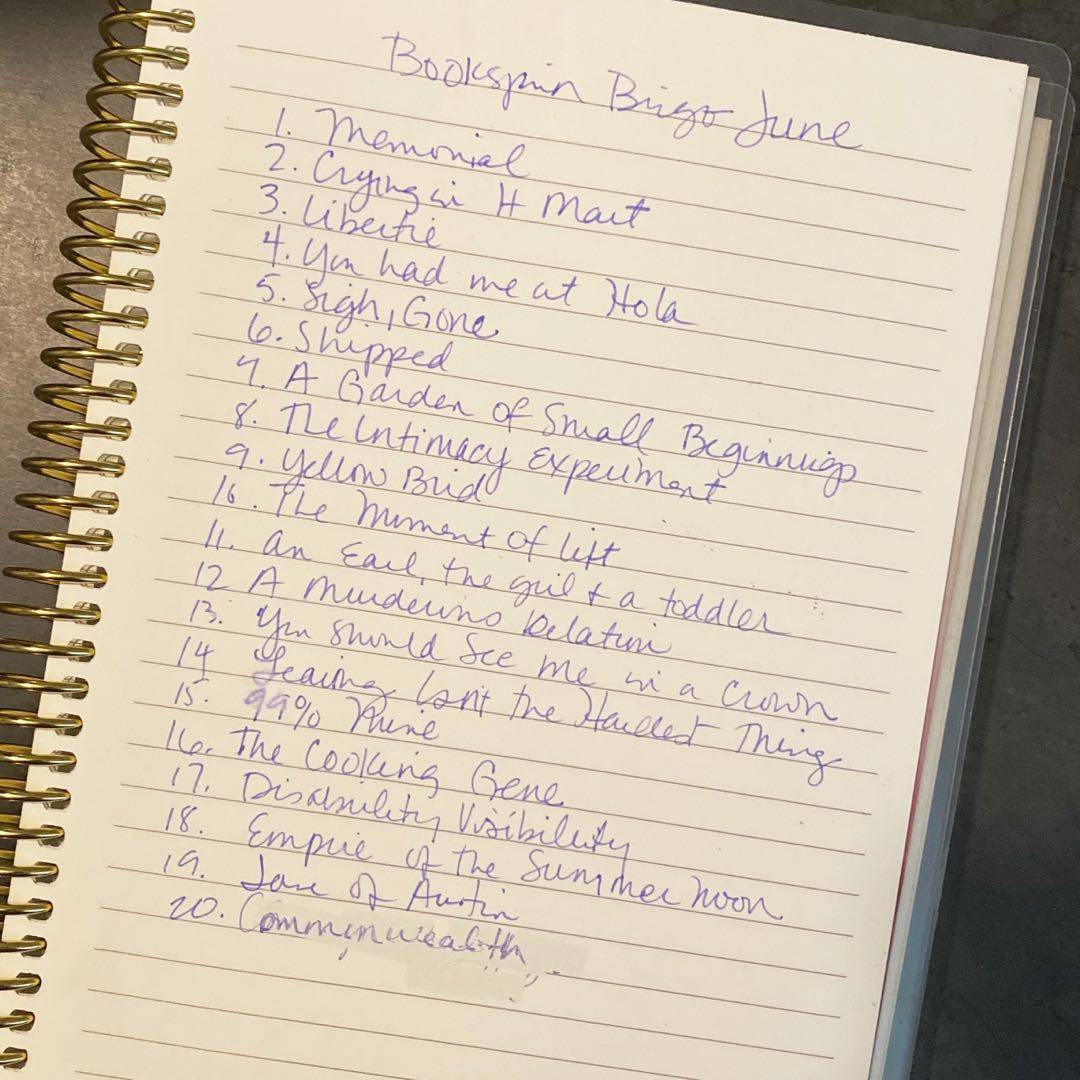 Bookspin Bingo June
1. Memorial
2. Crying in H Mart
3. Libertie
4. You had me at Hola
5. Sigh, Gone
6. Shipped
7. A Garden of Small Beginnings
8. The Intimacy Experiment
9. Yellow Bird
10. The Moment of lift
11. An Earl, the girl & a toddler
12 A Murderous Relation
13. You should see me in a crown
14 Leaving Isn't the Hardest Thing
15. 99% Mine
16. The Cooking Gene
17. Disability Visibility
18. Empire of the Summer Moon
19. Jane of Austin
20. Commonwealth